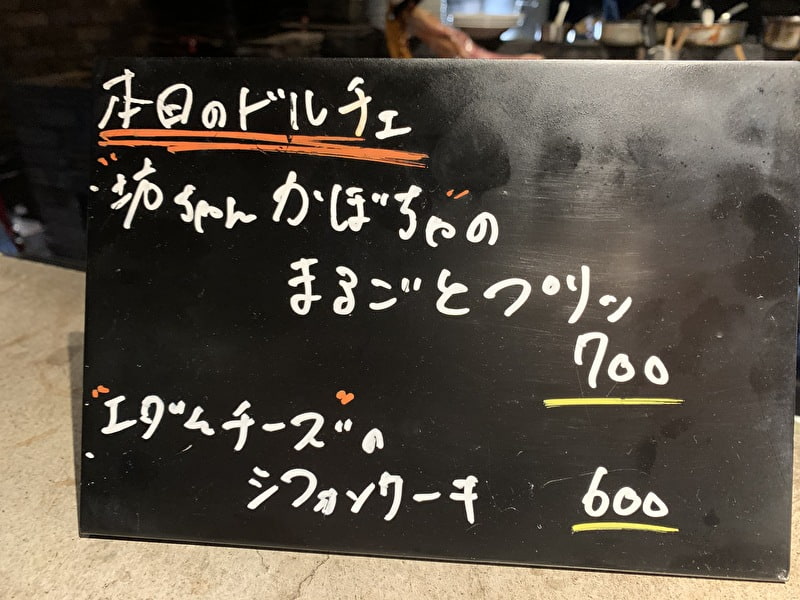 本日のドルチェ
・"坊ちゃんかぼちゃ"の
まるごとプリン
700
・"エダムチーズ"の
シフォンケーキ 600